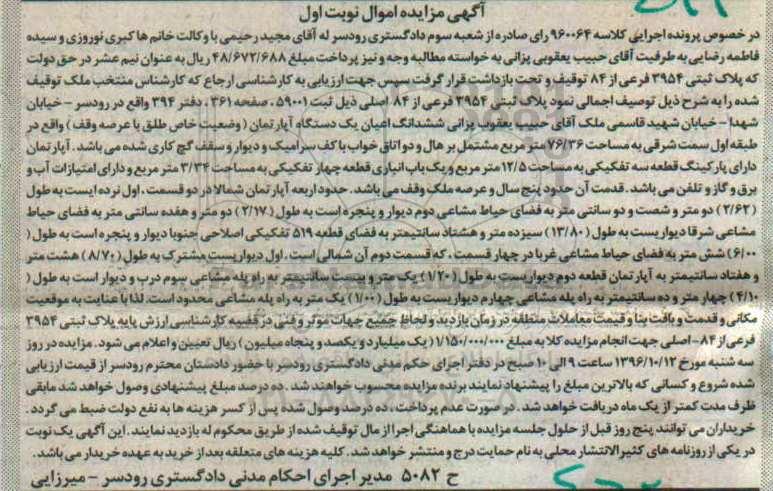 آگهی مزایده اموال نوبت اول
در خصوص پرونده اجرایی کلاسه ۹۶۰۰۶۴ رای صادره از شعبه سوم دادگستری رودسر له آقای مجید رحیمی با وکالت خانم ها کبری نوروزی و سیده
فاطمه رضایی به طرفیت آقای حبیب یعقوبی پزانی به خواسته مطالبه وجه و نیز پرداخت مبلغ ۴۸/۶۷۲/۶۸۸ ریال به عنوان نیم عشر در حق دولت
که پلاک ثبتی ۳۹۵۴ فرعی از ۸۴ توقیف و تحت بازداشت قرار گرفت سپس جهت ارزیابی به کارشناسی ارجاع که کارشناس منتخب ملک توقیف
شده را به شرح ذیل توصیف اجمالی نمود پلاک ثبتی ۳۹۵۴ فرعی از ۸۴ اصلی ذیل ثبت ۵۹۰۰۱ ، صفحه ۳۶۱ ، دفتر ۳۹۴ واقع در رودسر - خیابان
شهدا - خیابان شهید قاسمی ملک آقای حبیب یعقوب پزانی ششدانگ اعیان یک دستگاه آپارتمان ( وضعیت خاص طلق با عرصه وقف ) واقع در
طبقه اول سمت شرقی به مساحت ۷۶/۳۶ متر مربع مشتمل بر هال و دو اتاق خواب با کف سرامیک و دیوار و سقف گچ کاری شده می باشد . آپارتمان
دارای پارکینگ قطعه سه تفکیکی به مساحت ۱۲/۵ متر مربع و یک باب انباری قطعه چهار تفکیکی به مساحت ۳/۳۴ متر مربع و دارای امتیازات آب و
برق و گاز و تلفن می باشد . قدمت آن حدود پنج سال و عرصه ملک وقف می باشد . حدود اربعه آپارتمان شمالا در دو قسمت ، اول نرده ایست به طول
(۲/۶۲) دو متر و شصت و دو سانتی متر به فضای حیاط مشاعی دوم دیوار و پنجره است به طول (۲/۱۷) دو متر و هفده سانتی متر به فضای حیاط
مشاعی شرقا دیواریست به طول (۱۳/۸۰) سیزده متر و هشتاد سانتیمتر به فضای قطعه ۵۱۹ تفکیکی اصلاحی جنوبا دیوار و پنجره است به طول (
۶/۰۰) شش متر به فضای حیاط مشاعی غربا در چهار قسمت ، که قسمت دوم آن شمالی است . اول دیواریست مشترک به طول (۸/۷۰) هشت متر
و هفتاد سانتیمتر به آپارتمان قطعه دوم دیواریست به طول (۱/۲۰) یک متر و بیست سانتیمتر به راه پله مشاعی سوم درب و دیوار است به طول (
۴/۱۰) چهار متر و ده سانتیمتر به راه پله مشاعی چهارم دیواریست به طول (۱/۰۰) یک متر به راه پله مشاعی محدود است. لذا با عنایت به موقعیت
مکانی و قدمت و بافت بنا و قیمت معاملات منطقه در زمان بازدید و لحاظ جمیع جهات موثر و فنی در قضیه کارشناسی ارزش پایه پلاک ثبتی ۳۹۵۴
فرعی از ۸۴ - اصلی جهت انجام مزایده کلا به مبلغ ۱/۱۵۰/۰۰۰/۰۰۰ ( یک میلیارد و یکصد و پنجاه میلیون ) ریال تعیین و اعلام می شود . مزایده در روز
سه شنبه مورخ ۱۳۹۶/۱۰/۱۲ ساعت ۹ الی ۱۰ صبح در دفتر اجرای حکم مدنی دادگستری رودسر با حضور دادستان محترم رودسر از قیمت ارزیابی
شده شروع و کسانی که بالاترین مبلغ را پیشنهاد نمایند برنده مزایده محسوب خواهند شد . ده درصد مبلغ پیشنهادی وصول خواهد شد مابقی
ظرف مدت کمتر از یک ماه دریافت خواهد شد . در صورت عدم پرداخت ، ده درصد وصول شده پس از کسر هزینه ها به نفع دولت ضبط می گردد .
خریداران می توانند پنج روز قبل از حلول جلسه مزایده با هماهنگی اجرا از مال توقیف شده از طریق محکوم له بازدید نمایند . این آگهی یک نوبت
در یکی از روزنامه های کثیرالانتشار محلی به نام حمایت درج و منتشر خواهد شد. کلیه هزینه های متعلقه بعد از خرید به عهده خریدار می باشد.
ح ۵۰۸۲ مدیر اجرای احکام مدنی دادگستری رودسر - میرزایی